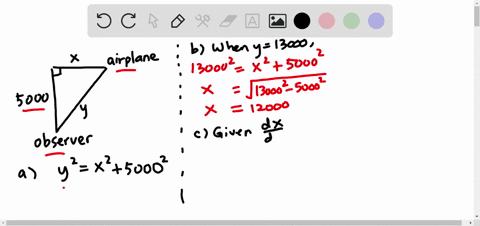 x
airplane
5000
y
observer
a) y² = x² + 5000²
b) When y = 13000,
13000² = x² + 5000²
x = √(13000² - 5000²)
x = 12000
c) Given dx/d